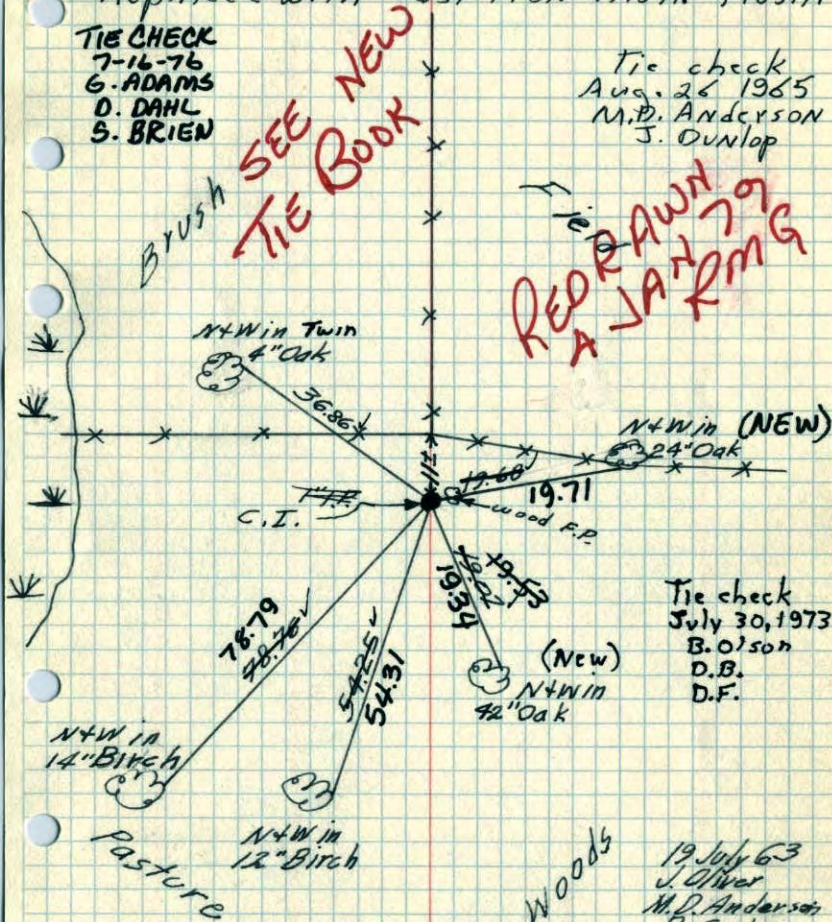 TIE CHECK
7-16-76
G. ADAMS
D. DAHL
S. BRIEN
SEE NEW
TIE BOOK
Tie check
Aug. 26 1965
M.D. Anderson
J. Dunlop
Brush
Field
REDRAWN
A JAN 79
RMG
N+W in Twin
4" Oak
36.86
N+W in (NEW)
24" Oak
11±
19.68
19.71
C.I.
1" I.P.
wood F.P.
78.79
78.76
54.25
54.31
19.34
19.02
19.53
(New)
N+W in
42" Oak
Tie check
July 30, 1973
B. Olson
D.B.
D.F.
N+W in
14" Birch
N+W in
12" Birch
Pasture
Woods
19 July 63
J. Oliver
M.D. Anderson